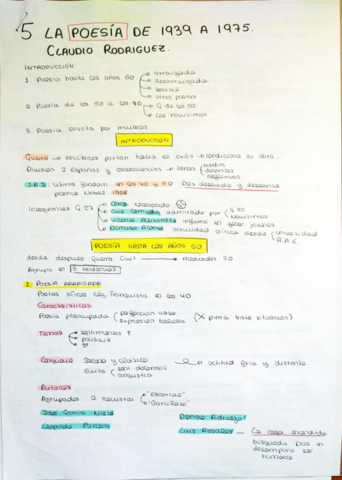 5 LA POESÍA DE 1939 A 1975.
CLAUDIO RODRIGUEZ.
INTRODUCCIÓN
1. Poesía hasta los años 50 arraigada
desarraigada
social
otros poetas
2. Poesía de los 50 a los 70 G de los 50
Los novísimos
3. Poesía escrita por mujeres
INTRODUCCIÓN
Guerra escritores parten hacia el exilio condiciona su obra.
División 2 Españas y consecuencias
J.R.J. últimos en los 40 y 50 Dios deseado y deseante
premio Nobel 1956
Integrantes G 27 Lorca
Luis Cernuda, admirado por G 50
Novísimos
Vicente Aleixandre jóvenes
Dámaso Alonso actividad crítica desde universidad
R.A.E.
POESÍA HASTA LOS AÑOS 50
desde después Guerra Civil mediados 50
Agrupa en 3 tendencias
1 POESÍA ARRAIGADA
Poetas afines franquista en los 40
Características
Poesía preocupada perfección
expresión belleza
Temas sentimientos
paisaje
Lenguaje Sereno y clásico actitud fría y distante.
Evita
angustia
Autores
Agrupados 2 revistas "Escorial"
"Garcilaso"
José García Nieto Dionisio Ridruejo
Leopoldo Panero Luis Rosales La casa encendida
búsqueda Dios en
desamparo ser
humano